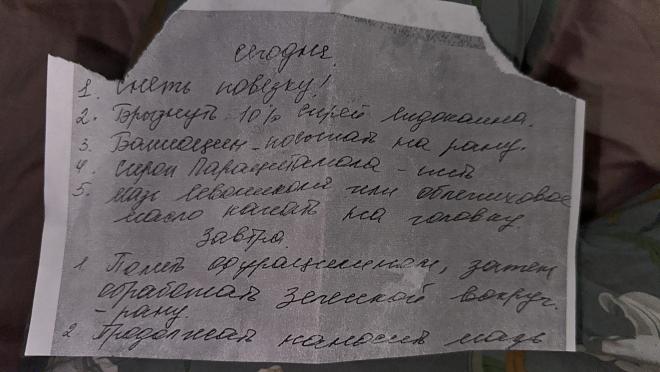 Сегодня
1. Снять повязку!
2. Брызнуть 10% спрей лидокаина.
3. Банеоцин - посыпать на рану.
4. Сироп Парацетамола - пить
5. Мазь левомиколь или облепиховое
масло капать на головку.
Завтра.
1. Полить фурацилином, затем
обработать Зеленкой вокруг
- рану.
2. Продолжать наносить мазь